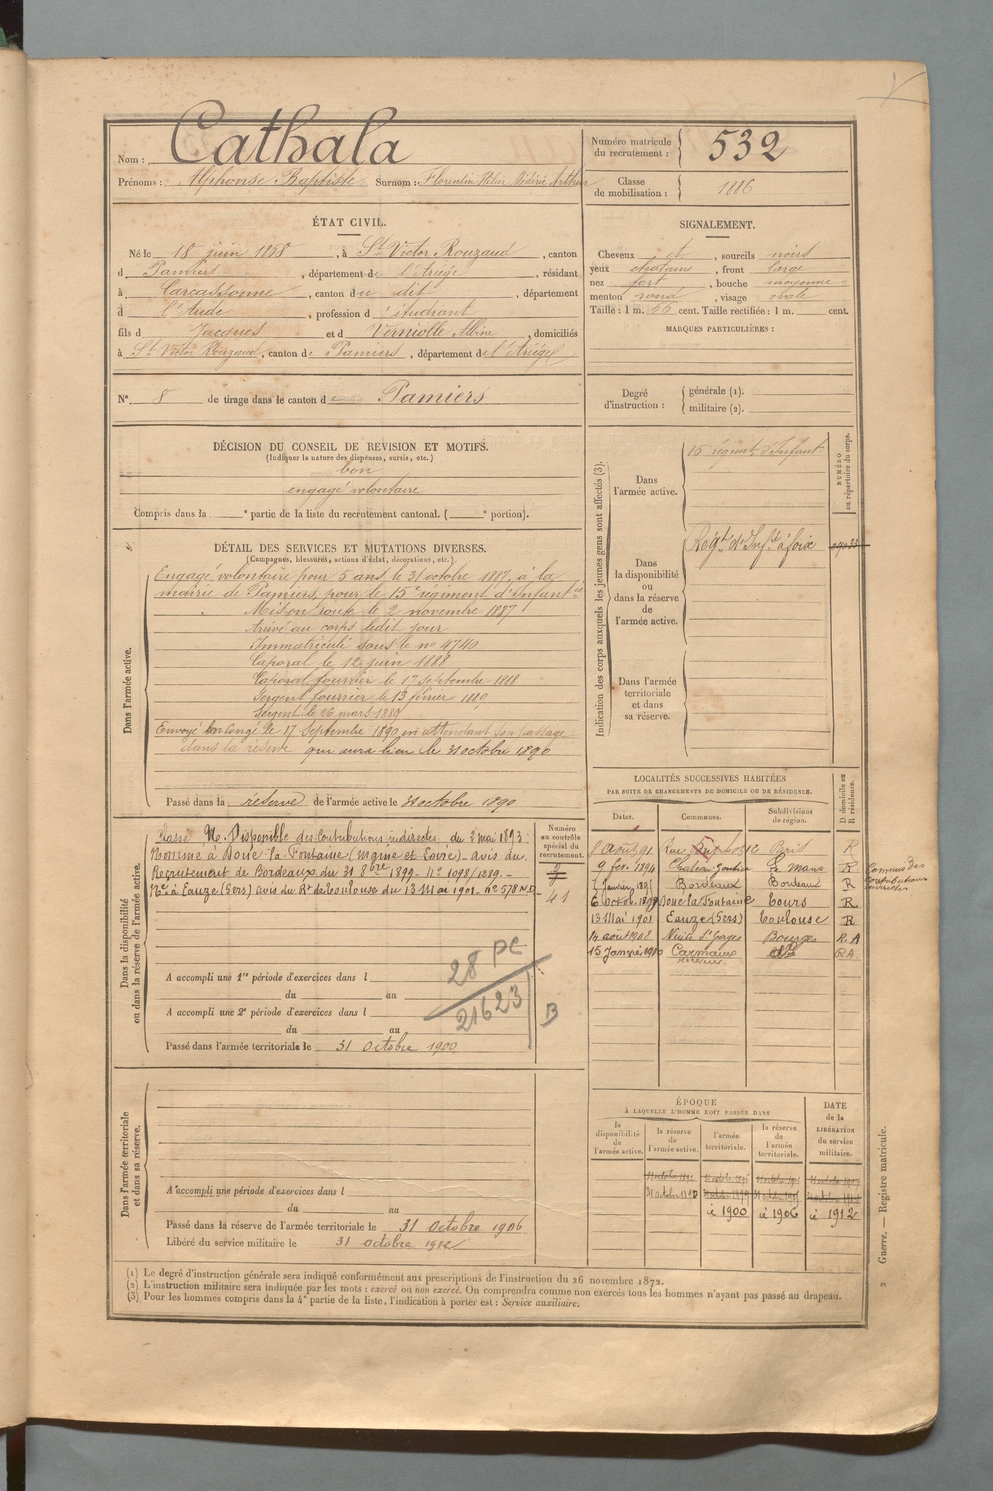 Nom : Cathala
Prénoms : Alphonse Baptiste Surnom : Florentin Médérie Arthur
Numéro matricule du recrutement : 532
Classe de mobilisation : 1886
ÉTAT CIVIL.
Né le 18 juin 1868, à St Victor Rouzaud, canton
d Pamiers, département de l'Ariège, résidant
à Carcassonne, canton du dit, département
d l'Aude, profession d'étudiant
fils d Jacques et d Verniolle Albine, domiciliés
à St Victor Rouzaud, canton de Pamiers, département de l'Ariège
SIGNALEMENT.
Cheveux et, sourcils noirs
yeux chatains, front large
nez fort, bouche moyenne
menton rond, visage ovale
Taille : 1 m. 66 cent. Taille rectifiée : 1 m. cent.
MARQUES PARTICULIÈRES :
N° 8 de tirage dans le canton d Pamiers
Degré d'instruction : générale (1).
militaire (2).
DÉCISION DU CONSEIL DE REVISION ET MOTIFS.
(Indiquer la nature des dispenses, sursis, etc.)
bon
engagé volontaire
Compris dans la e partie de la liste du recrutement cantonal. ( e portion).
DÉTAIL DES SERVICES ET MUTATIONS DIVERSES.
(Campagnes, blessures, actions d'éclat, décorations, etc.)
Dans l'armée active.
Engagé volontaire pour 5 ans, le 31 octobre 1887, à la
mairie de Pamiers, pour le 15e régiment d'Infanterie
Mis en route le 2 novembre 1887
Arrivé au corps ledit jour
Immatriculé sous le no 4740
Caporal le 12 juin 1888
Caporal fourrier le 17 septembre 1888
Sergent fourrier le 13 février 1889
Sergent le 26 mars 1889
Envoyé en congé le 17 septembre 1890 en attendant son passage
dans la réserve qui aura lieu le 31 octobre 1890
Passé dans la réserve de l'armée active le 31 octobre 1890
Indication des corps auxquels les jeunes gens sont affectés (3).
NUMÉRO au répertoire du corps.
Dans l'armée active.
15 régimt d'Infant
Dans la disponibilité ou dans la réserve de l'armée active.
Régt d'Infie à Foix
Dans l'armée territoriale et dans sa réserve.
LOCALITÉS SUCCESSIVES HABITÉES
PAR SUITE DE CHANGEMENTS DE DOMICILE OU DE RÉSIDENCE.
Dates. Communes. Subdivisions de région. D domicile ou R résidence.
Août 91 Rue Paris R
9 fév. 1894 Chateau Gontier Le Mans R
Janvier 1895 Bordeaux Bordeaux R
6 Octob. 1899 Doué la Fontaine Tours R
13 Mai 1901 Eauze (Gers) Toulouse R
14 août 1908 Nuits St Georges Bourges R.A
15 Janvier 1910 Carmaux R.A.
Commis des Contributions indirectes
Dans la disponibilité ou dans la réserve de l'armée active.
Numéro au contrôle spécial du recrutement.
Classé N. Disponible des Contributions indirectes du 2 mai 1893
Nommé à Doué-la-Fontaine (Maine et Loire). Avis du
Recrutement de Bordeaux du 31 8bre 1899. No 1098/1889.
Né à Eauze (Gers) avis du Rt de Toulouse du 13 Mai 1901. No 578 N.D.
41
28 PC
21623
B
A accompli une 1re période d'exercices dans l
du au
A accompli une 2e période d'exercices dans l
du au
Passé dans l'armée territoriale le 31 Octobre 1900
Dans l'armée territoriale et dans sa réserve.
A accompli une période d'exercices dans l
du au
Passé dans la réserve de l'armée territoriale le 31 Octobre 1906
Libéré du service militaire le 31 octobre 1912
ÉPOQUE
À LAQUELLE L'HOMME DOIT PASSER DANS
la disponibilité de l'armée active. la réserve de l'armée active. l'armée territoriale. la réserve de l'armée territoriale. DATE de la LIBÉRATION du service militaire.
à 1900 à 1906 à 1912
2 Guerre. — Registre matricule.
(1) Le degré d'instruction générale sera indiqué conformément aux prescriptions de l'instruction du 26 novembre 1872.
(2) L'instruction militaire sera indiquée par les mots : exercé ou non exercé. On comprendra comme non exercés tous les hommes n'ayant pas passé au drapeau.
(3) Pour les hommes compris dans la 4e partie de la liste, l'indication à porter est : Service auxiliaire.